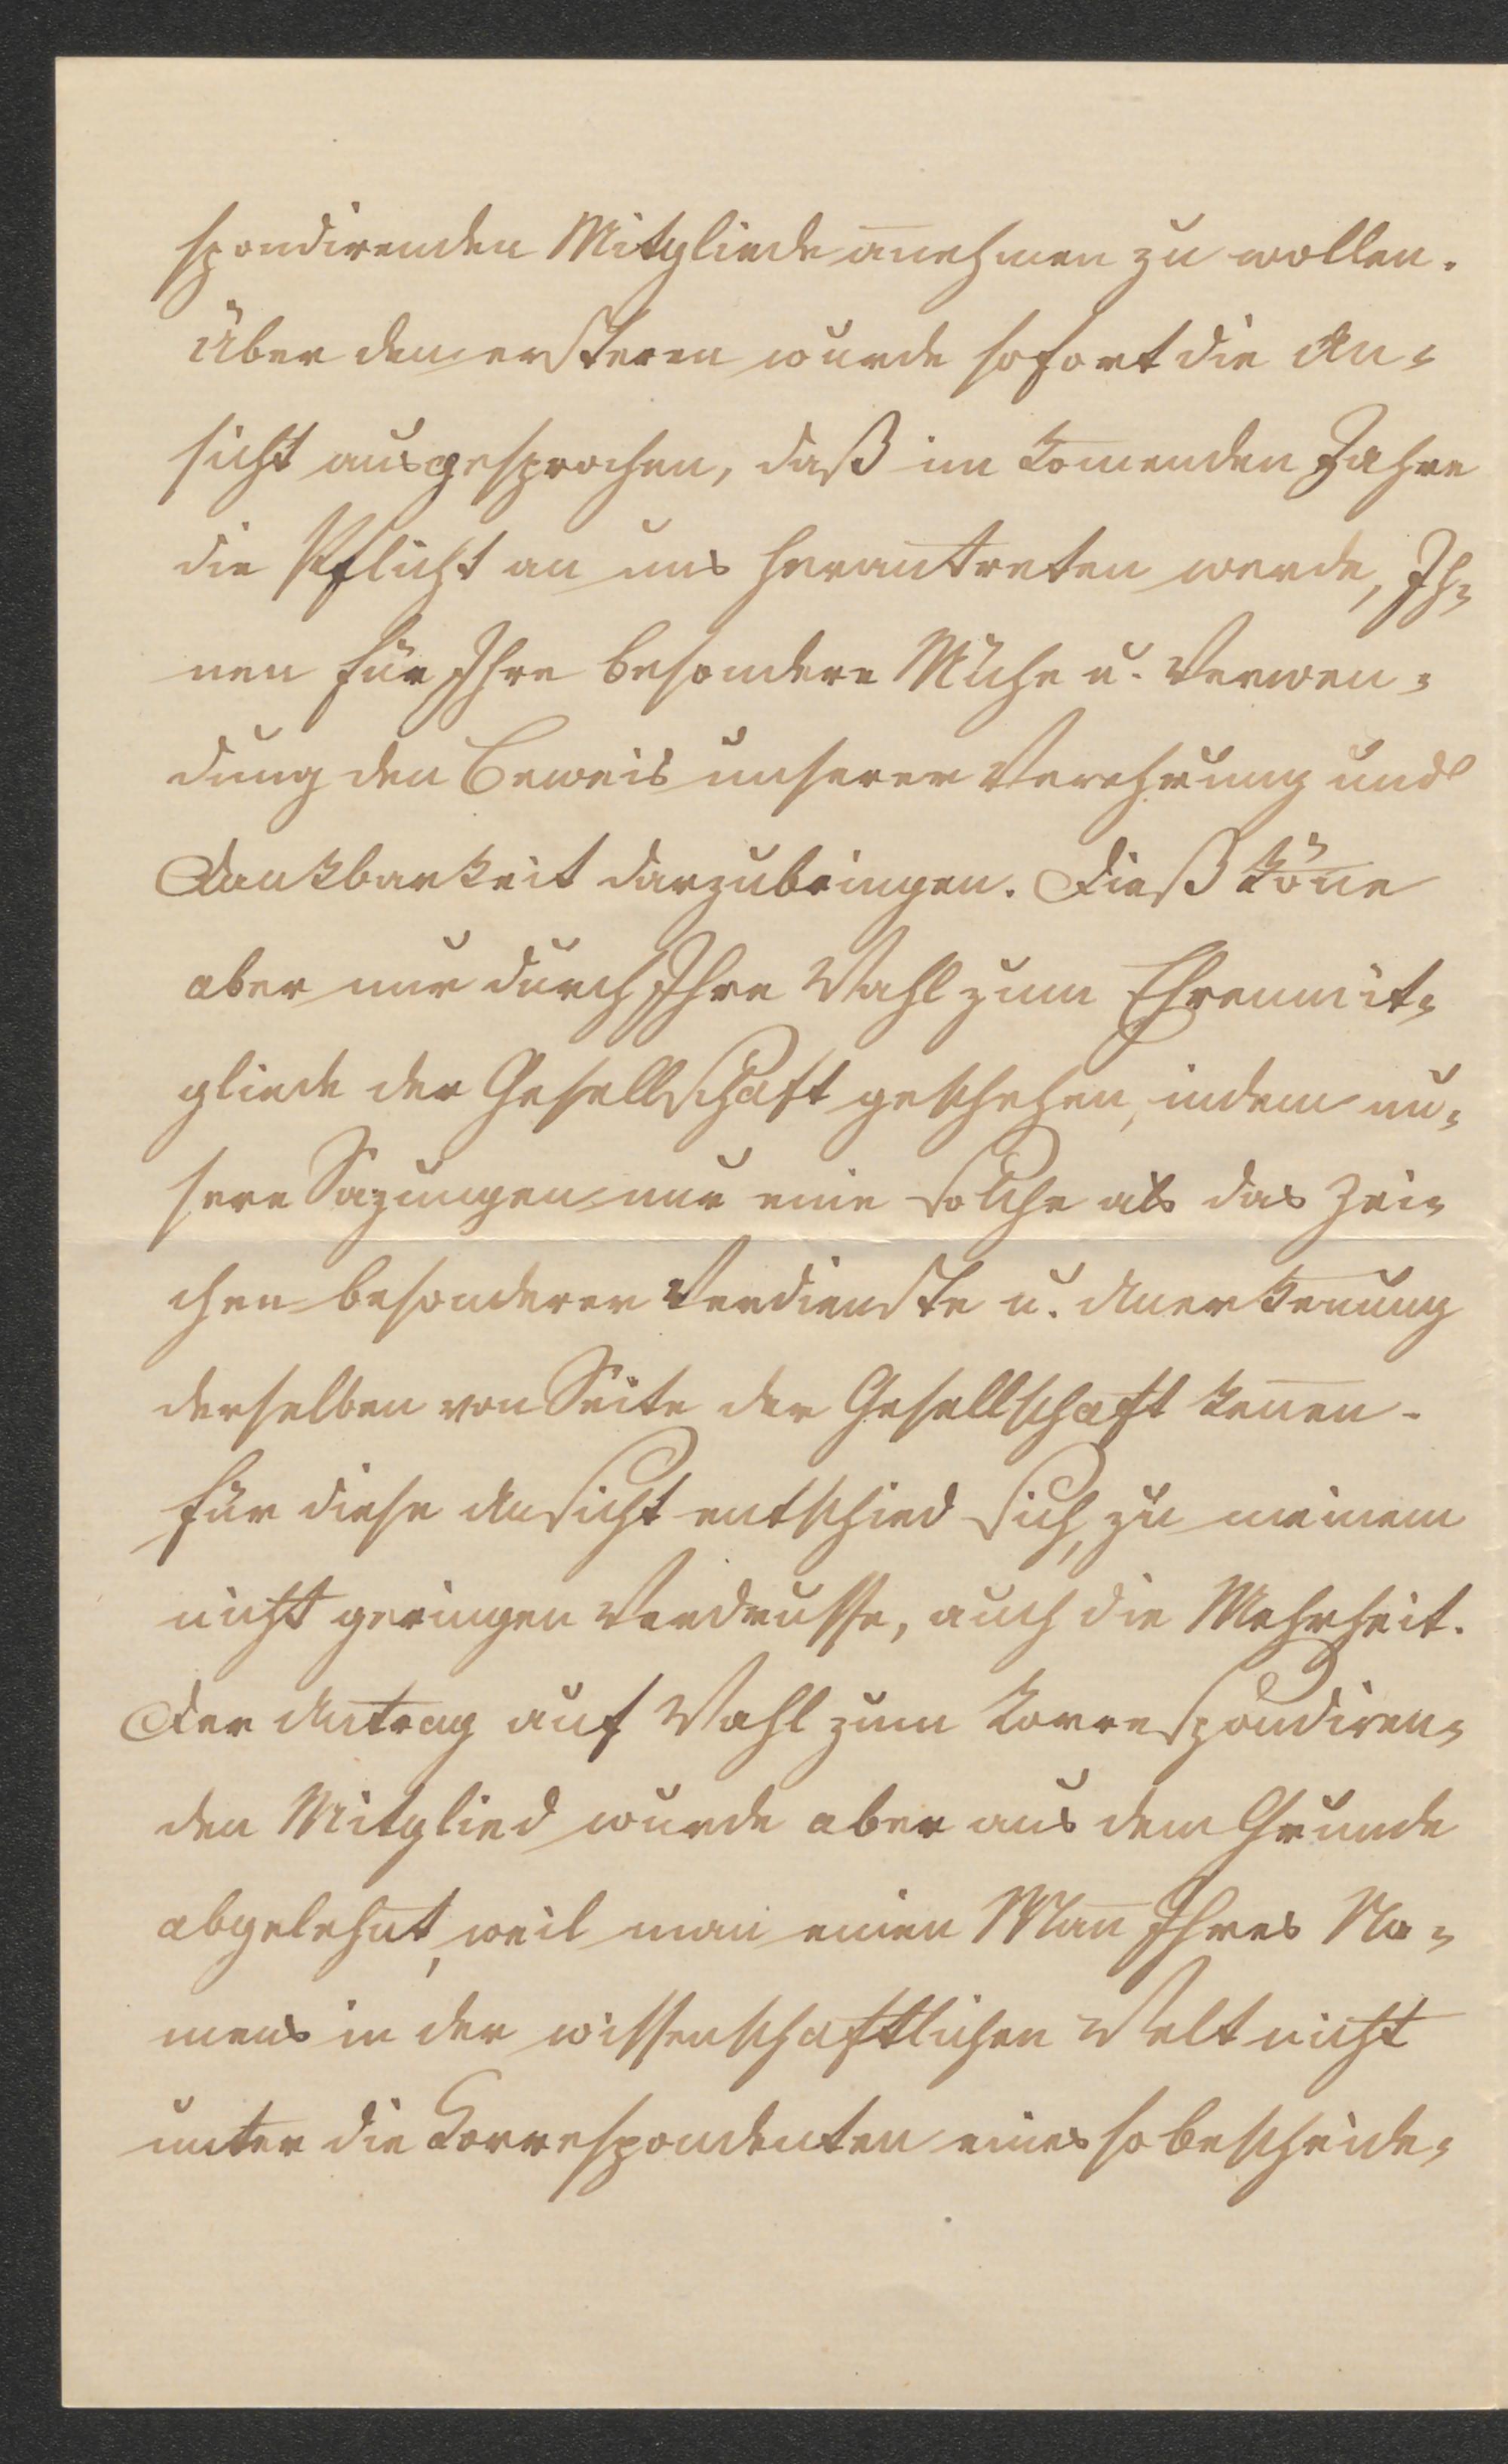 spondirenden Mitgliede añehmen zu wollen.
Über den ersteren wurde sofort die An-
sicht ausgesprochen, daß im kom̄enden Jahre
die Pflicht an uns herantreten werde, Ih-
nen für Ihre besondere Mühe u. Verwen-
dung den Beweis unserer Verehrung und
Dankbarkeit darzubringen. Dieß köñe
aber nur durch Ihre Wahl zum Ehrenmit-
gliede der Gesellschaft geschehen, indem un-
sere Sazungen nur eine solche als das Zei-
chen besonderer Verdienste u. Anerkeñung
derselben von Seite der Gesellschaft keñen.
Für diese Ansicht entschied sich, zu meinem
nicht geringen Verdrusse, auch die Mehrheit.
Der Antrag auf Wahl zum korrespondiren-
den Mitglied wurde aber aus dem Grunde
abgelehnt, weil man einen Mañ Ihres Na-
mens in der wissenschaftlichen Welt nicht
unter die Korrespondenten eines so bescheide-